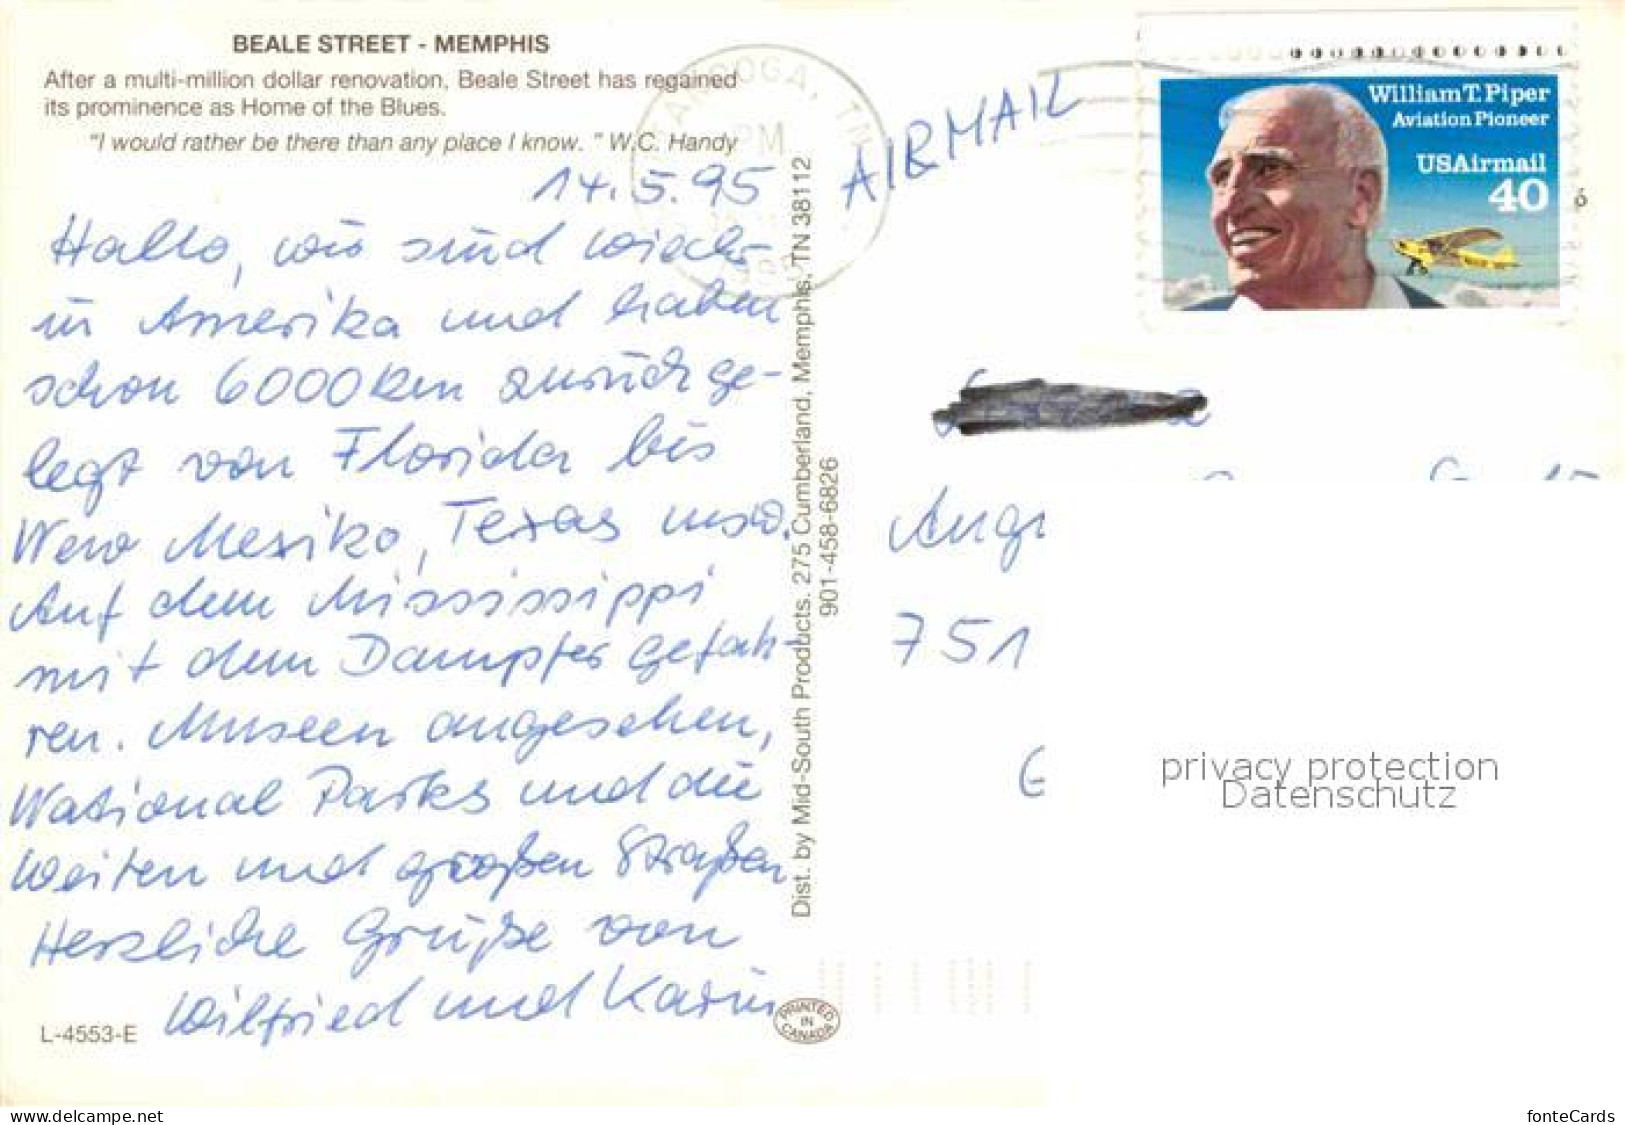 BEALE STREET - MEMPHIS
After a multi-million dollar renovation, Beale Street has regained
its prominence as Home of the Blues.
"I would rather be there than any place I know. " W.C. Handy
14.5.95
Hallo, wir sind wieder
in Amerika und haben
schon 6000 km zurückge-
legt von Florida bis
New Mexiko, Texas usw.
Auf dem Mississippi
mit dem Dampfer gefah-
ren. Museen angesehen,
National Parks und die
weiten und großen Straßen
Herzliche Grüße von
Wilfried und Karin
L-4553-E
PRINTED
IN
CANADA
Dist. by Mid-South Products. 275 Cumberland, Memphis, TN 38112
901-458-6826
OOGA, TN
PM
AIRMAIL
William T. Piper
Aviation Pioneer
USAirmail
40
6
751
privacy protection
Datenschutz
www.delcampe.net
fonteCards